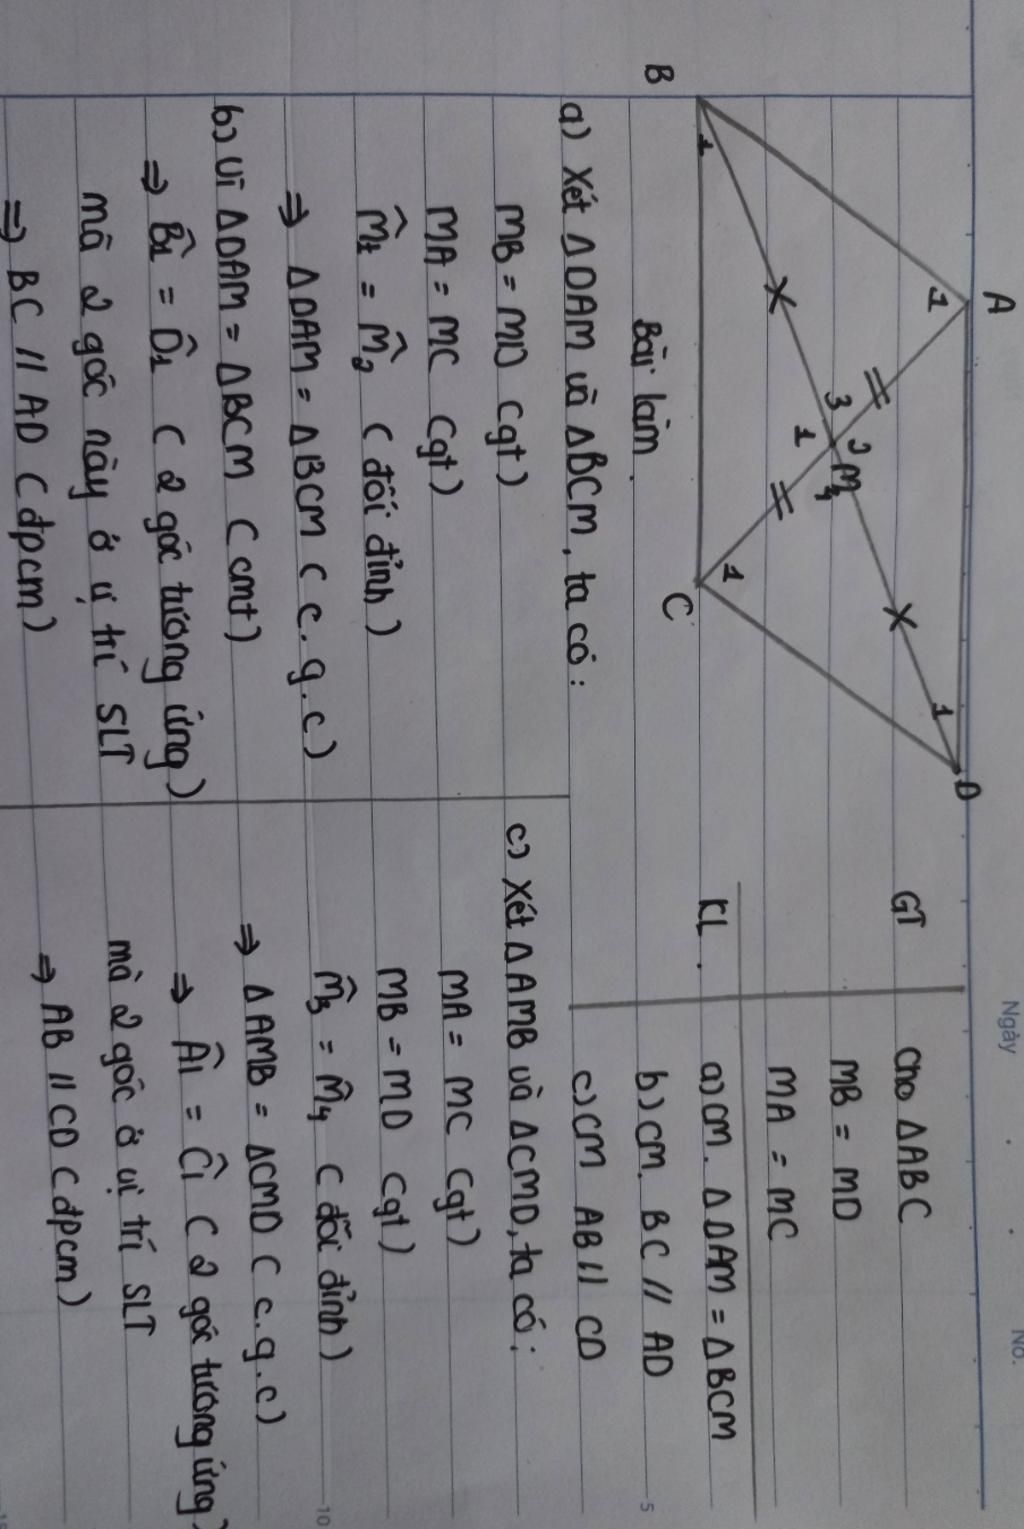 Ngày
No.
A
D
B
C
M
1
1
1
1
1
2
3
4
GT
Cho ΔABC
MB = MD
MA = MC
KL.
a) CM. ΔDAM = ΔBCM
b) CM. BC // AD
c) CM AB // CD
5
Bài làm.
a) Xét ΔDAM và ΔBCM, ta có:
MB = MD (gt)
MA = MC (gt)
M̂1 = M̂2 (đối đỉnh)
⇒ ΔDAM = ΔBCM (c.g.c)
b) Vì ΔDAM = ΔBCM (cmt)
⇒ B̂1 = D̂1 (2 góc tương ứng)
mà 2 góc này ở vị trí SLT
⇒ BC // AD (đpcm)
c) Xét ΔAMB và ΔCMD, ta có:
MA = MC (gt)
MB = MD (gt)
M̂3 = M̂4 (đối đỉnh)
10
⇒ ΔAMB = ΔCMD (c.g.c)
⇒ Â1 = Ĉ1 (2 góc tương ứng)
mà 2 góc ở vị trí SLT
⇒ AB // CD (đpcm)